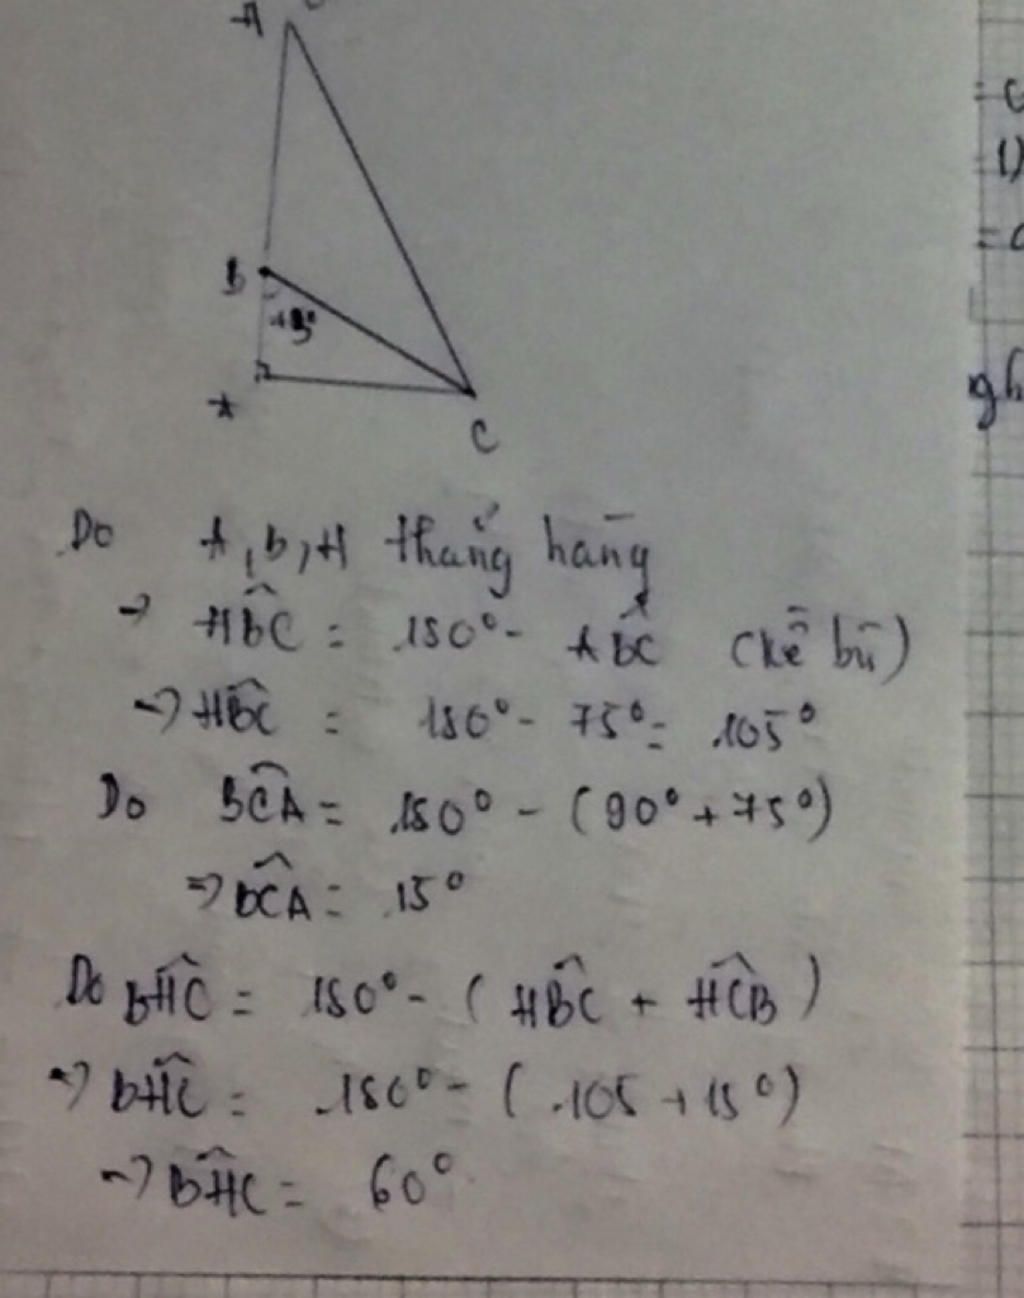 H
B
75°
A
C
Do A, B, H thẳng hàng
→ HBC = 180° - ABC (kề bù)
→ HBC = 180° - 75° = 105°
Do BCA = 180° - (90° + 75°)
⇒ BCA = 15°
Do BHC = 180° - (HBC + HCB)
→ BHC = 180° - (105 + 15°)
→ BHC = 60°
gh